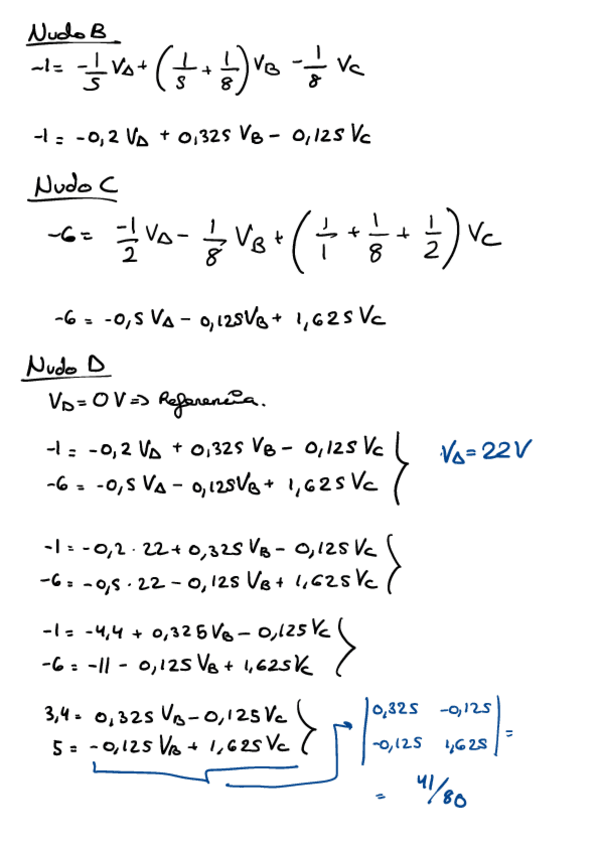 Nudo B
-1 = -1/5 VA + (1/5 + 1/8) VB - 1/8 VC
-1 = -0,2 VA + 0,325 VB - 0,125 VC
Nudo C
-6 = -1/2 VA - 1/8 VB + (1/1 + 1/8 + 1/2) VC
-6 = -0,5 VA - 0,125 VB + 1,625 VC
Nudo D
VD = 0 V => Referencia.
-1 = -0,2 VA + 0,325 VB - 0,125 VC } VA = 22V
-6 = -0,5 VA - 0,125 VB + 1,625 VC
-1 = -0,2 · 22 + 0,325 VB - 0,125 VC }
-6 = -0,5 · 22 - 0,125 VB + 1,625 VC
-1 = -4,4 + 0,325 VB - 0,125 VC }
-6 = -11 - 0,125 VB + 1,625 VC
3,4 = 0,325 VB - 0,125 VC } | 0,325 -0,125 |
5 = -0,125 VB + 1,625 VC | -0,125 1,625 | =
= 41/80